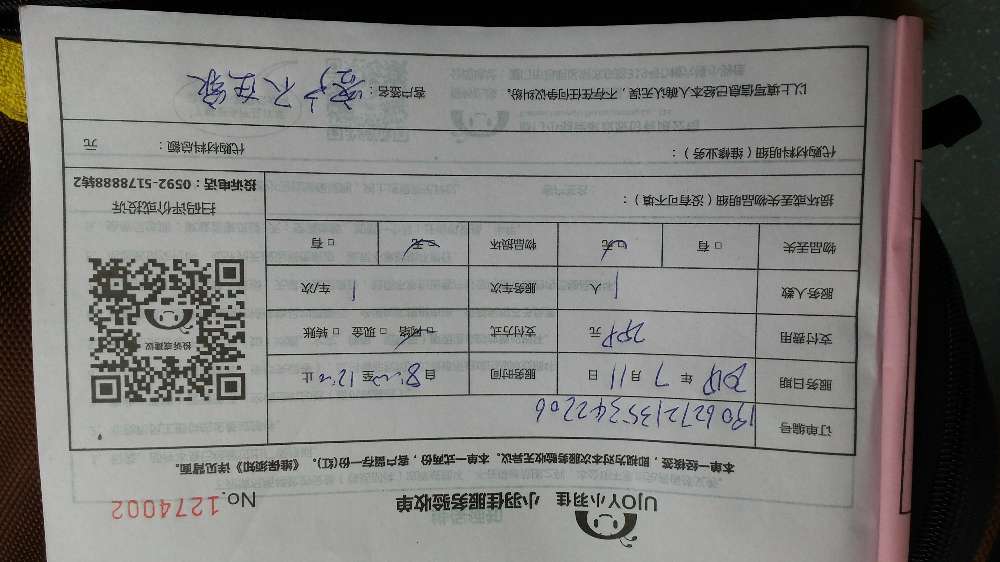 UJOY小羽佳 小羽佳服务验收单 No.1274002
本单一经接签，即视为对本次服务验收无异议。本单一式两份，客户留存一份(红)。《维保须知》详见背面。
订单编号 180627213534 2206
服务日期 2018 年 7 月 11 日 服务时间 自 8:00 至 12:00 止
支付费用 元 支付方式 □网络 □现金 □转账
服务人数 1 人 服务车次 1 车/次
物品丢失 □有 □无 物品损坏 □无 □有
投诉或建议
扫码评价或投诉
投诉电话：0592-5178888转2
损坏或丢失物品明细（没有可不填）：
代购材料明细（维修业务）： 代购材料总额： 元
以上填写信息已经本人确认无误，不存在任何争议纠纷。 客户签名：客户不在家